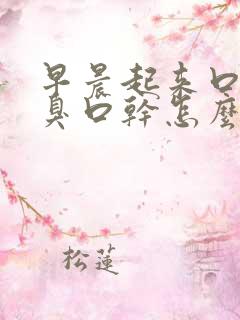 早晨起来口
臭口幹怎麼
松蓮